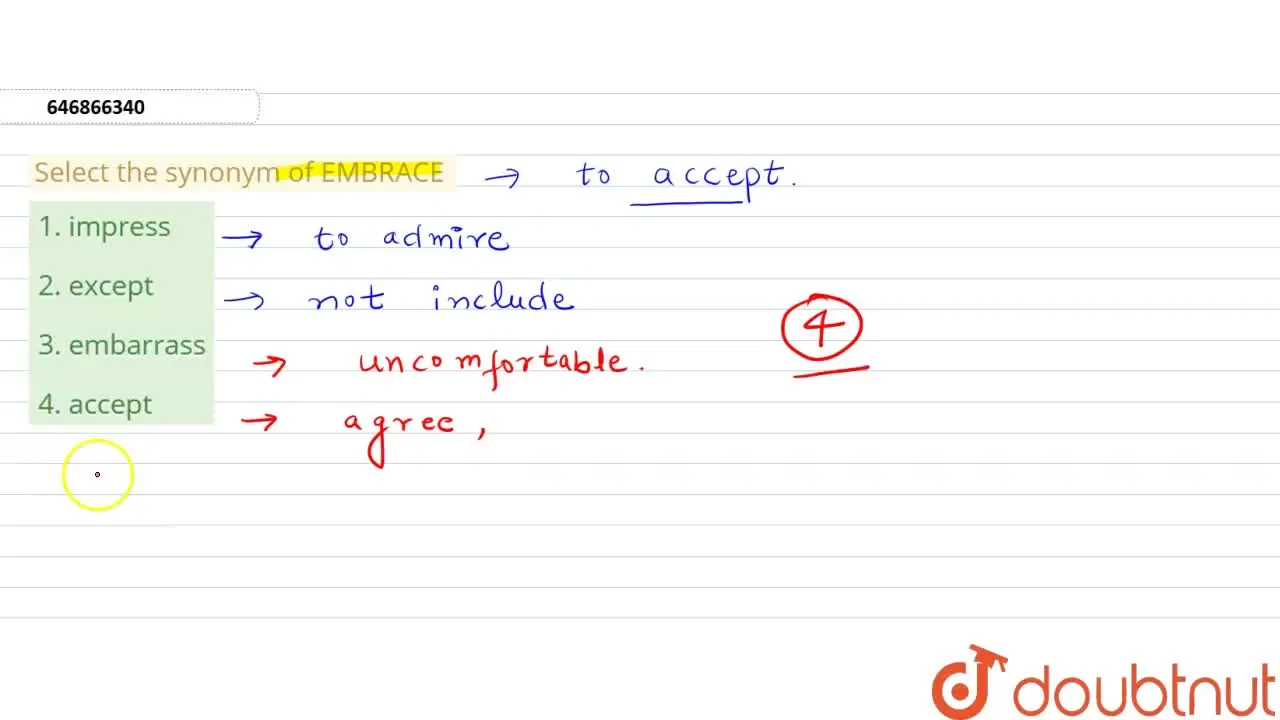 646866340
Select the synonym of EMBRACE → to accept.
1. impress → to admire
2. except → not include
3. embarrass → uncomfortable.
4. accept → agree,
4
doubtnut